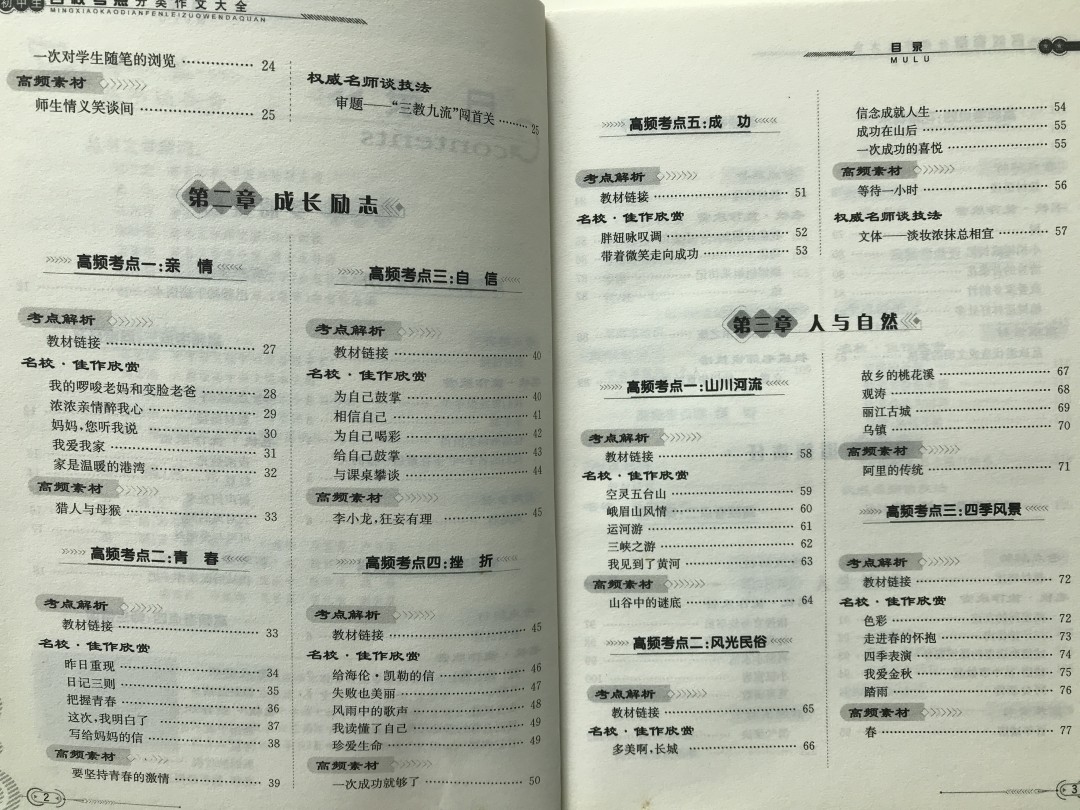 初中生名校考点分类作文大全
MINGXIAOKAODIANFENLEIZUOWENDAQUAN
一次对学生随笔的浏览 24
高频素材
师生情义笑谈间 25
权威名师谈技法
审题——“三教九流”闯首关 25
第二章 成长励志
高频考点一:亲 情
考点解析
教材链接 27
名校·佳作欣赏
我的啰唆老妈和变脸老爸 28
浓浓亲情醉我心 29
妈妈,您听我说 30
我爱我家 31
家是温暖的港湾 32
高频素材
猎人与母猴 33
高频考点二:青 春
考点解析
教材链接 33
名校·佳作欣赏
昨日重现 34
日记三则 35
把握青春 36
这次,我明白了 37
写给妈妈的信 38
高频素材
要坚持青春的激情 39
高频考点三:自 信
考点解析
教材链接 40
名校·佳作欣赏
为自己鼓掌 40
相信自己 41
为自己喝彩 42
给自己鼓掌 43
与课桌攀谈 44
高频素材
李小龙,狂妄有理 45
高频考点四:挫 折
考点解析
教材链接 45
名校·佳作欣赏
给海伦·凯勒的信 46
失败也美丽 47
风雨中的歌声 48
我读懂了自己 49
珍爱生命 49
高频素材
一次成功就够了 50
2
目录
MULU
高频考点五:成 功
考点解析
教材链接 51
名校·佳作欣赏
胖妞咏叹调 52
带着微笑走向成功 53
信念成就人生 54
成功在山后 55
一次成功的喜悦 55
高频素材
等待一小时 56
权威名师谈技法
文体——淡妆浓抹总相宜 57
第三章 人与自然
高频考点一:山川河流
考点解析
教材链接 58
名校·佳作欣赏
空灵五台山 59
峨眉山风情 60
运河游 61
三峡之游 62
我见到了黄河 63
高频素材
山谷中的谜底 64
高频考点二:风光民俗
考点解析
教材链接 65
名校·佳作欣赏
多美啊,长城 66
故乡的桃花溪 67
观涛 68
丽江古城 69
乌镇 70
高频素材
阿里的传统 71
高频考点三:四季风景
考点解析
教材链接 72
名校·佳作欣赏
色彩 72
走进春的怀抱 73
四季表演 74
我爱金秋 75
踏雨 76
高频素材
春 77
3